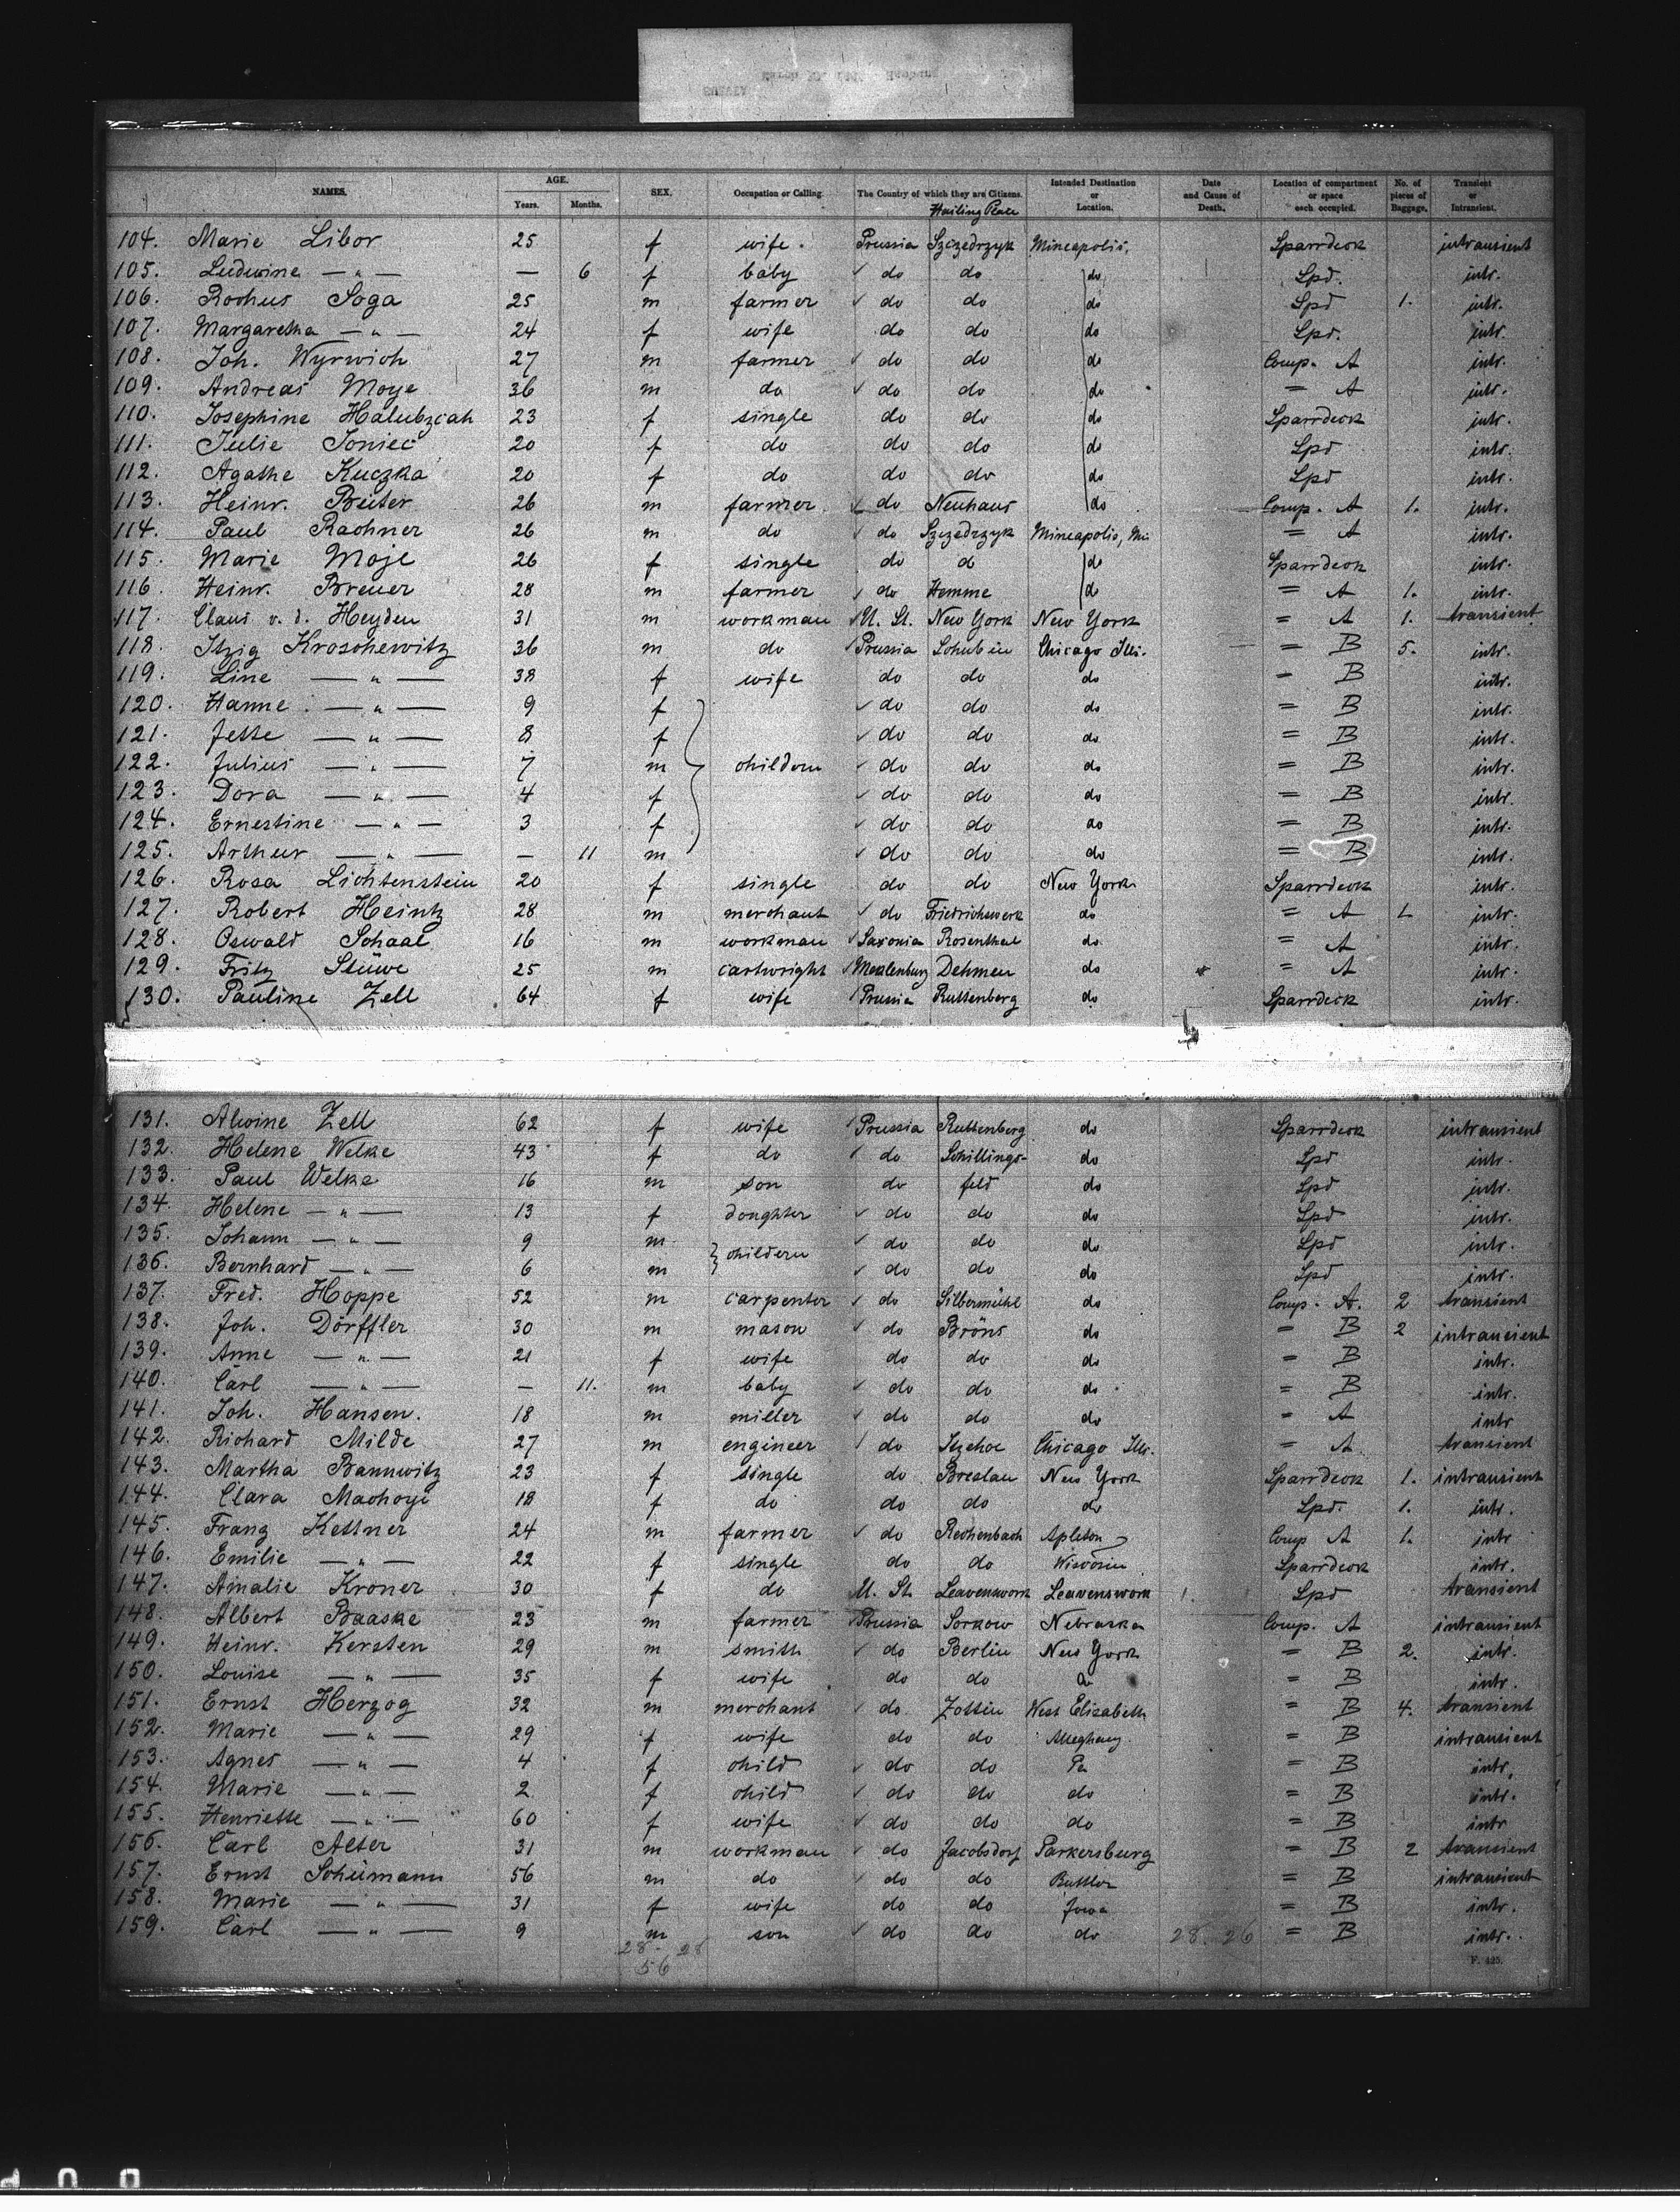 NAMES. AGE. Years. Months. SEX. Occupation or Calling. The Country of which they are Citizens. Hailing Place Intended Destination or Location. Date and Cause of Death. Location of compartment or space each occupied. No. of pieces of Baggage. Transient or Intransient.
104. Marie Libor 25 f wife. Prussia Szczedrzyk Mineapolis, Sparrdeck intransient
105. Ludwine — " — — 6 f baby do do do Spd. intr.
106. Rochus Soga 25 m farmer do do do Spd 1. intr.
107. Margaretha — " — 24 f wife do do do Spd. intr.
108. Joh. Wyrwich 27 m farmer do do do Comp. A intr.
109. Andreas Moye 36 m do do do do = A intr.
110. Josephine Halubzcah 23 f single do do do Sparrdeck intr.
111. Julie Joniec 20 f do do do do Spd intr.
112. Agathe Kuczka 20 f do do do do Spd intr.
113. Heinr. Breiter 26 m farmer do Neuhaus do Comp. A 1. intr.
114. Paul Rachner 26 m do do Szczedrzyk Mineapolis, Mi. = A intr.
115. Marie Moje 26 f single do d do Sparrdeck intr.
116. Heinr. Breuer 28 m farmer do Hemme do = A 1. intr.
117. Claus v. d. Heyden 31 m workman U. St. New York New York = A 1. transient
118. Itzig Kroschewitz 36 m do Prussia Schubin Chicago Illi. = B 5. intr.
119. Line — " — 38 f wife do do do = B intr.
120. Hanne — " — 9 f do do do = B intr.
121. Jette — " — 8 f do do do = B intr.
122. Julius — " — 7 m childern do do do = B intr.
123. Dora — " — 4 f do do do = B intr.
124. Ernestine — " — 3 f do do do = B intr.
125. Arthur — " — — 11 m do do do = B intr.
126. Rosa Lichtenstein 20 f single do do New York Sparrdeck intr.
127. Robert Heintz 28 m merchant do Friedrichswerk do = A 1. intr.
128. Oswald Schaal 16 m workman Saxonia Rosenthal do = A intr.
129. Fritz Stüwe 25 m cartwright Mecklenburg Dehmen do = A intr.
130. Pauline Zell 64 f wife Prussia Ruttenberg do Sparrdeck intr.
131. Alwine Zell 62 f wife Prussia Ruttenberg do Sparrdeck intransient
132. Helene Welke 43 f do do Schillings- do Spd intr.
133. Paul Welke 16 m son do feld do Spd intr.
134. Helene — " — 13 f doughter do do do Spd intr.
135. Johann — " — 9 m childern do do do Spd intr.
136. Bernhard — " — 6 m do do do Spd intr.
137. Fred. Hoppe 52 m carpenter do Silbermühl do Comp. A. 2 transient
138. Joh. Dörffler 30 m mason do Bröns do = B 2 intransient
139. Anne — " — 21 f wife do do do = B intr.
140. Carl — " — — 11. m baby do do do = B intr.
141. Joh. Hansen. 18 m miller do do do = A intr
142. Richard Milde 27 m engineer do Itzehoe Chicago Ill. = A transient
143. Martha Bannwitz 23 f single do Breslau New York Sparrdeck 1. intransient
144. Clara Machoyi 18 f do do do do Spd. 1. intr.
145. Franz Kettner 24 m farmer do Rechenbach Apleton Comp A 1. intr
146. Emilie — " — 22 f single do do Wisconsin Sparrdeck intr.
147. Amalie Kroner 30 f do U. St. Leavenswork Leavenswork Spd transient
148. Albert Baaske 23 m farmer Prussia Sorkow Nebraska Comp. A intransient
149. Heinr. Kersten 29 m smith do Berlin New York = B 2. intr.
150. Louise — " — 35 f wife do do do = B intr.
151. Ernst Herzog 32 m merchant do Zottin West Elizabeth = B 4. transient
152. Marie — " — 29 f wife do do Alleghany = B intransient
153. Agnes — " — 4 f child do do Pa = B intr.
154. Marie — " — 2 f child do do do = B intr.
155. Henriette — " — 60 f wife do do do = B intr
156. Carl Alter 31 m workman do Jacobsdorf Parkersburg = B 2 transient
157. Ernst Schümann 56 m do do do Buttler = B intransient
158. Marie — " — 31 f wife do do Jowa = B intr.
159. Carl — " — 9 m son do do do = B intr.
28. 28 28. 26
56
F. 425.